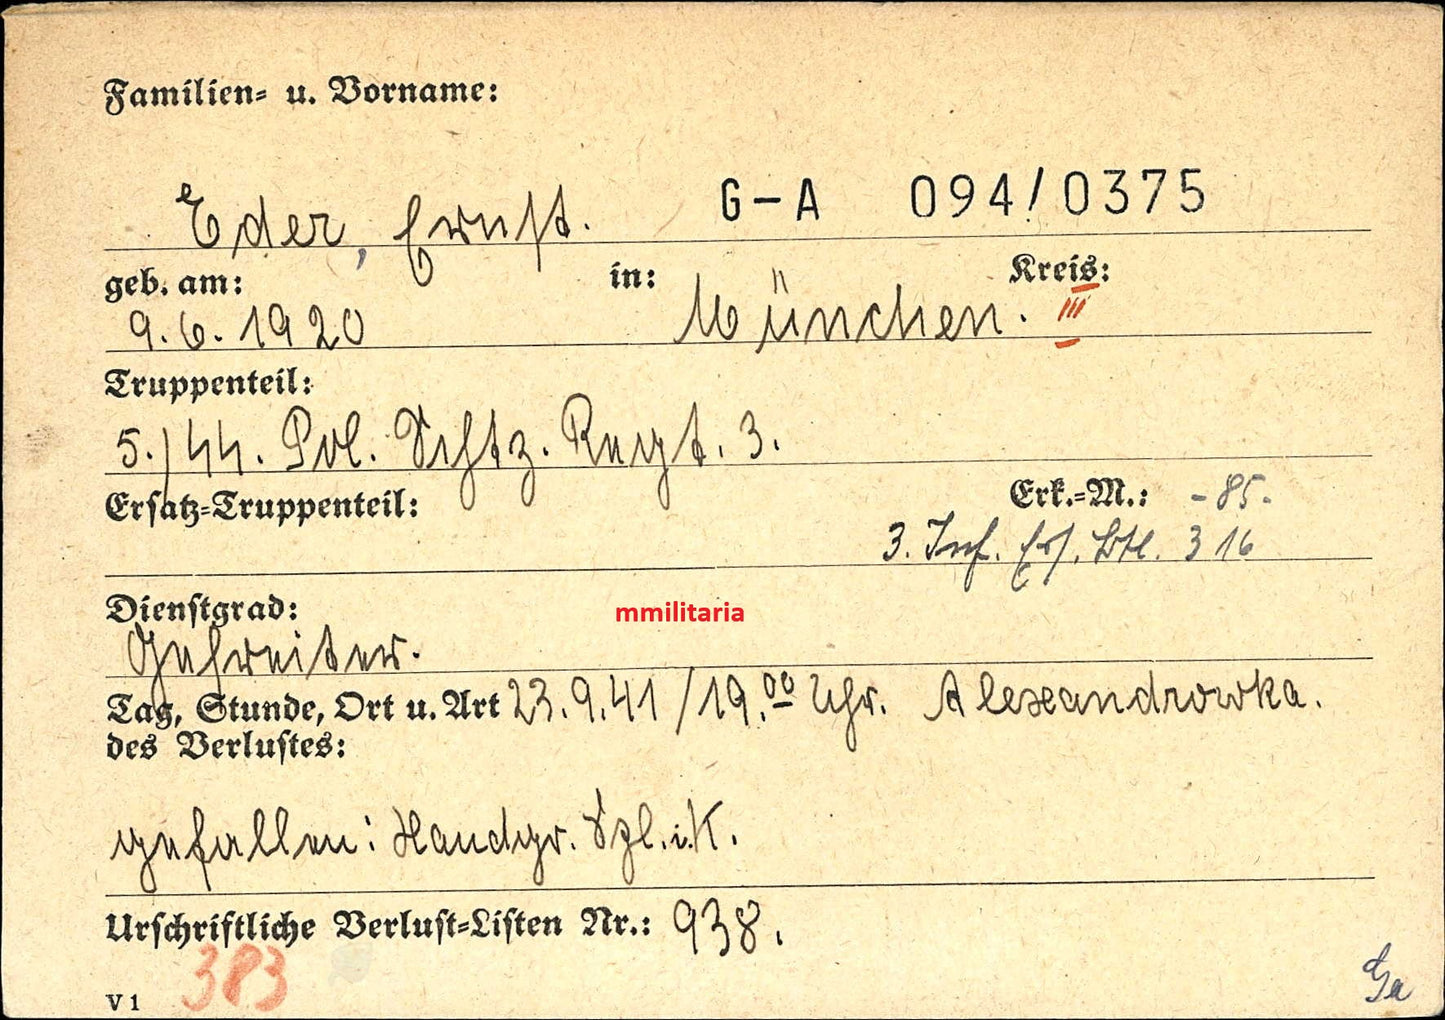 Familien- u. Vorname:
Eder, Ernst. G-A 094/0375
geb. am: in: Kreis:
9.6.1920 München. III
Truppenteil:
5./44. Pol. Schtz. Regt. 3.
Ersatz-Truppenteil: Erk.-M.: -85-
3. Inf. Ers. Btl. 316
Dienstgrad:
mmilitaria
Gefreiter.
Tag, Stunde, Ort u. Art 23.9.41 / 19.00 Uhr. Alexandrowka.
des Verlustes:
gefallen: Handgr. Spl. i. K.
Urschriftliche Verlust-Listen Nr.: 938.
383
V 1
Ga